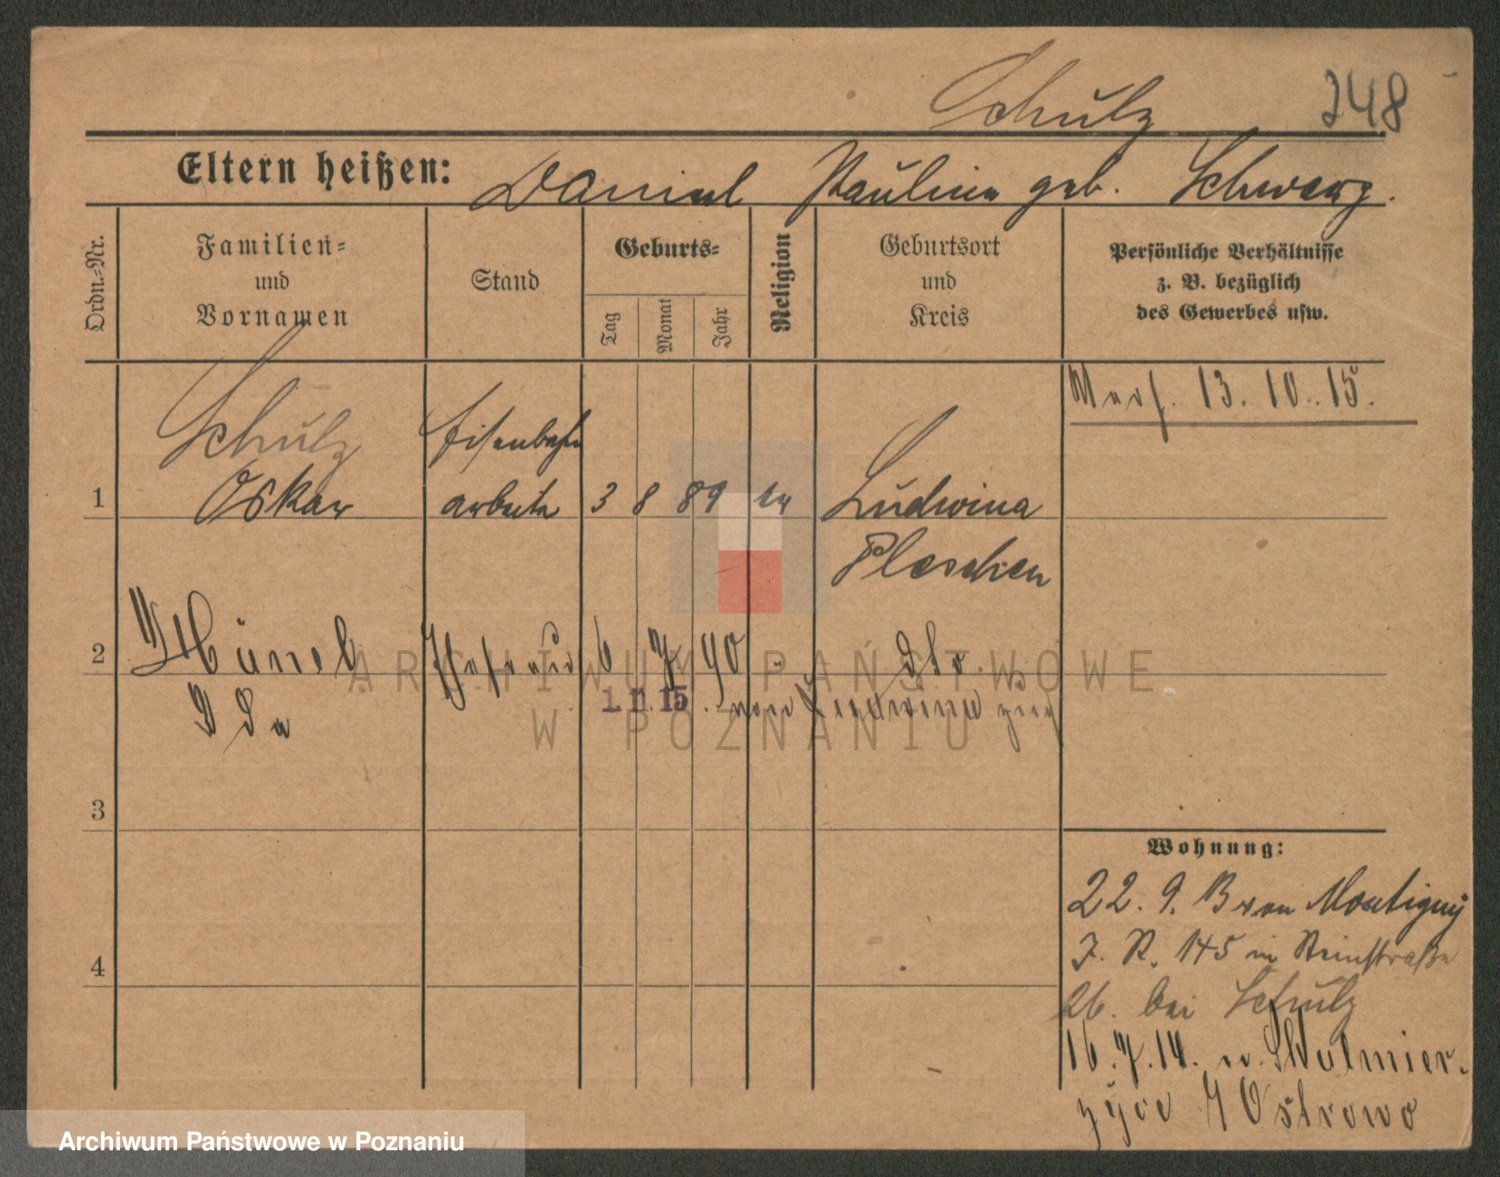 Schulz 248
Eltern heißen: Daniel Pauline geb. Schwarz.
Ordn.-Nr.
Familien-
und
Vornamen
Stand
Geburts-
Tag
Monat
Jahr
Religion
Geburtsort
und
Kreis
Persönliche Verhältnisse
z. B. bezüglich
des Gewerbes usw.
13. 10. 15.
Schulz Eisenbahn
1 Oskar arbeiter 3 8 89 ev Ludwina
Pleschen
2 Hünel Ehefrau 6 7 90 " dto
Ida 1. 11. 15. von Ludwina
3
4
Wohnung:
22. 9. 13 von Montigny
J. R. 145 in Steinstraße
26. bei Schulz
16. 7. 14. n. Skalmier-
zyce / Ostrowo
ARCHIWUM PAŃSTWOWE
W POZNANIU
Archiwum Państwowe w Poznaniu